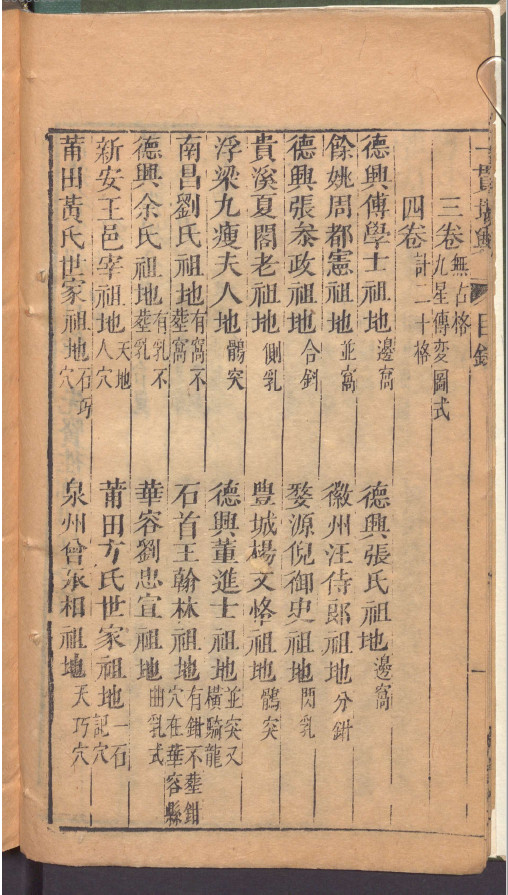 一貫堪輿 目錄 一
三卷 無占格 九星傳変圖式
四卷 計二十格
德興傅學士祖地 邊窩 德興張氏祖地 邊窩
餘姚周都憲祖地 並窩 徽州汪侍郎祖地 分鉗
德興張叅政祖地 合鈄 婺源倪御史祖地 閃乳
貴溪夏閣老祖地 側乳 豊城楊文恪祖地 鶻突
浮梁九瘦夫人地 鶻突 德興董進士祖地 並突又橫騎龍
南昌劉氏祖地 有窩不塟窩 石首王翰林祖地 有鉗不塟鉗穴在華容縣
德興余氏祖地 有乳不塟乳 華容劉忠宣祖地 曲乳式
新安王邑宰祖地 天地人穴 莆田方氏世家祖地 一石記穴
莆田黃氏世家祖地 石巧穴 泉州曾丞相祖地 天巧穴